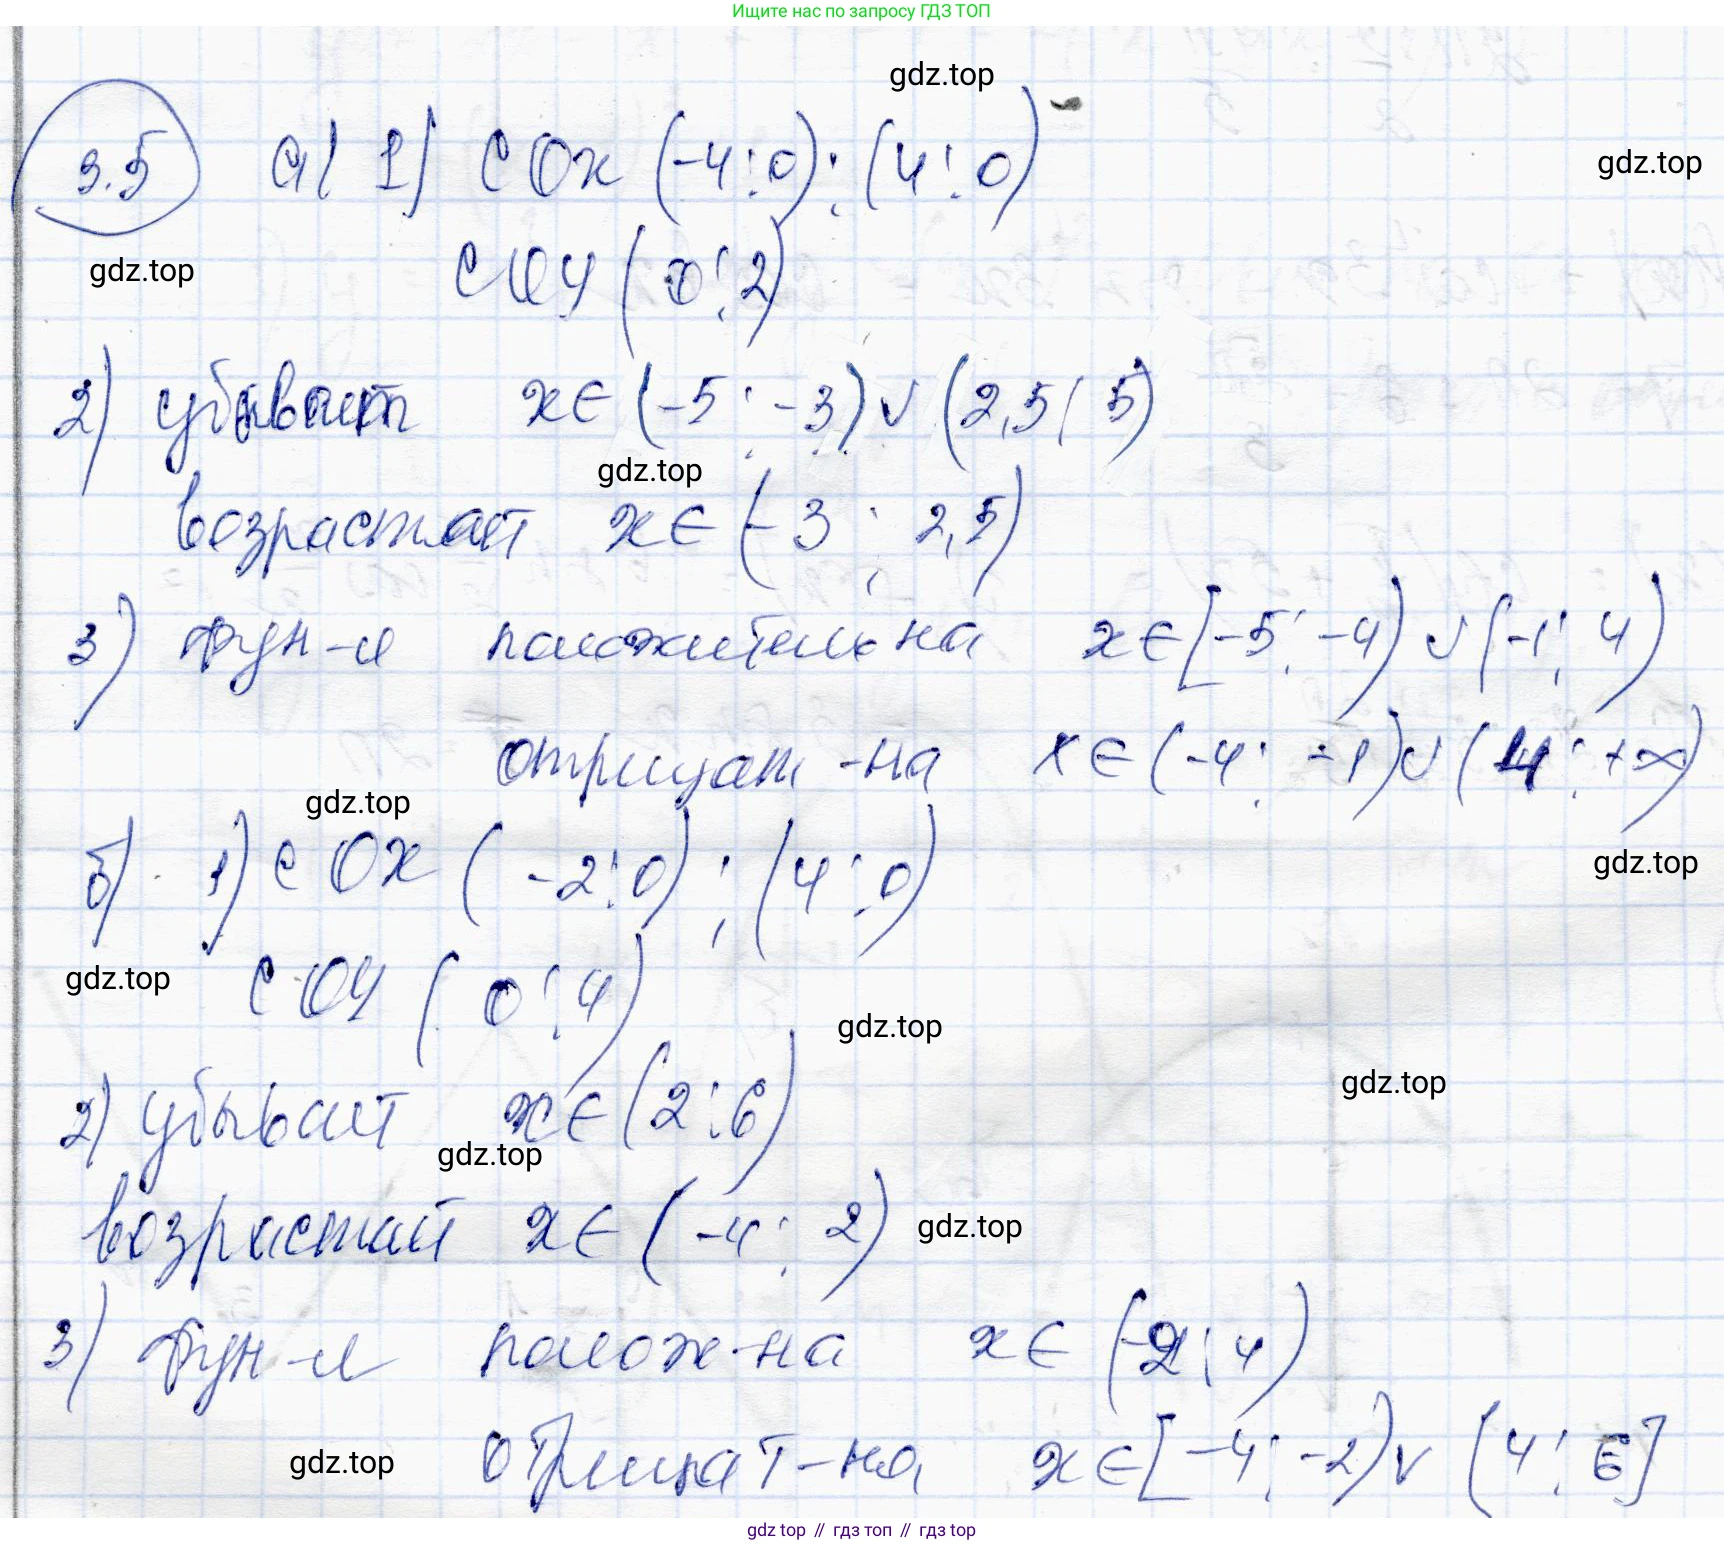 Ищите нас по запросу ГДЗ ТОП
gdz.top
3.5 а) 1) с OX (-4; 0); (4; 0)
gdz.top
с OY (0; 2)
gdz.top
2) убывает x∈(-5; -3)∪(2,5; 5)
gdz.top
возрастает x∈(-3; 2,5)
3) фун-я положительна x∈[-5; -4)∪(-1; 4)
отрицат-на x∈(-4; -1)∪(4; +∞)
gdz.top
б) 1) с OX (-2; 0); (4; 0)
gdz.top
с OY (0; 4)
gdz.top
gdz.top
gdz.top
2) убывает x∈(2; 6)
gdz.top
возрастает x∈(-4; 2)
gdz.top
3) фун-я полож-на x∈(-2; 4)
отрицат-на x∈[-4; -2)∪(4; 6]
gdz.top
gdz top // гдз топ // gdz top